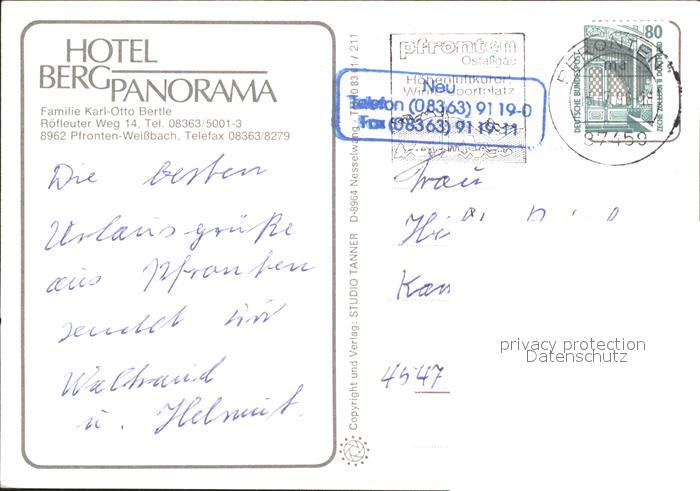 HOTEL
BERGPANORAMA
Familie Karl-Otto Bertle
Röfleuter Weg 14, Tel. 08363/5001-3
8962 Pfronten-Weißbach, Telefax 08363/8279
Die besten
Urlausgrüße
aus Pfronten
sendet dir
Waltraud
u. Helmut.
Copyright und Verlag: STUDIO TANNER D-8964 Nesselwang
211
pfronten
Ostallgäu
Höhenluftkurort
Wintersportplatz
Neu
Telefon (08363) 9119-0
Fax (08363) 9119-11
PFRONTEN
87459
80
DEUTSCHE BUNDESPOST
ZECHE ZOLLERN II DORTMUND
Frau
4547
privacy protection
Datenschutz